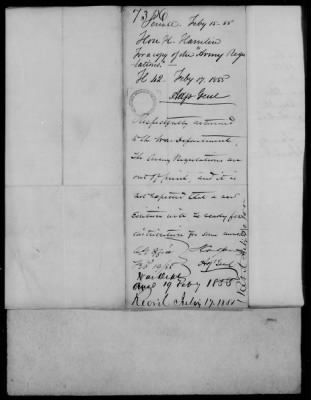 Senate. Feby 15. 55
Hon H. Hamlin
For a copy of the "Army Regu
lations." —
H 42. Feby 17. 1855
Adjt Genl
Respectfully returned
to the War Department.
The Army Regulations are
out of print, and it is
not expected that a new
edition will be ready for
distribution for some
Adjt Genl
19 Feby 1855
Recd 17. 1855